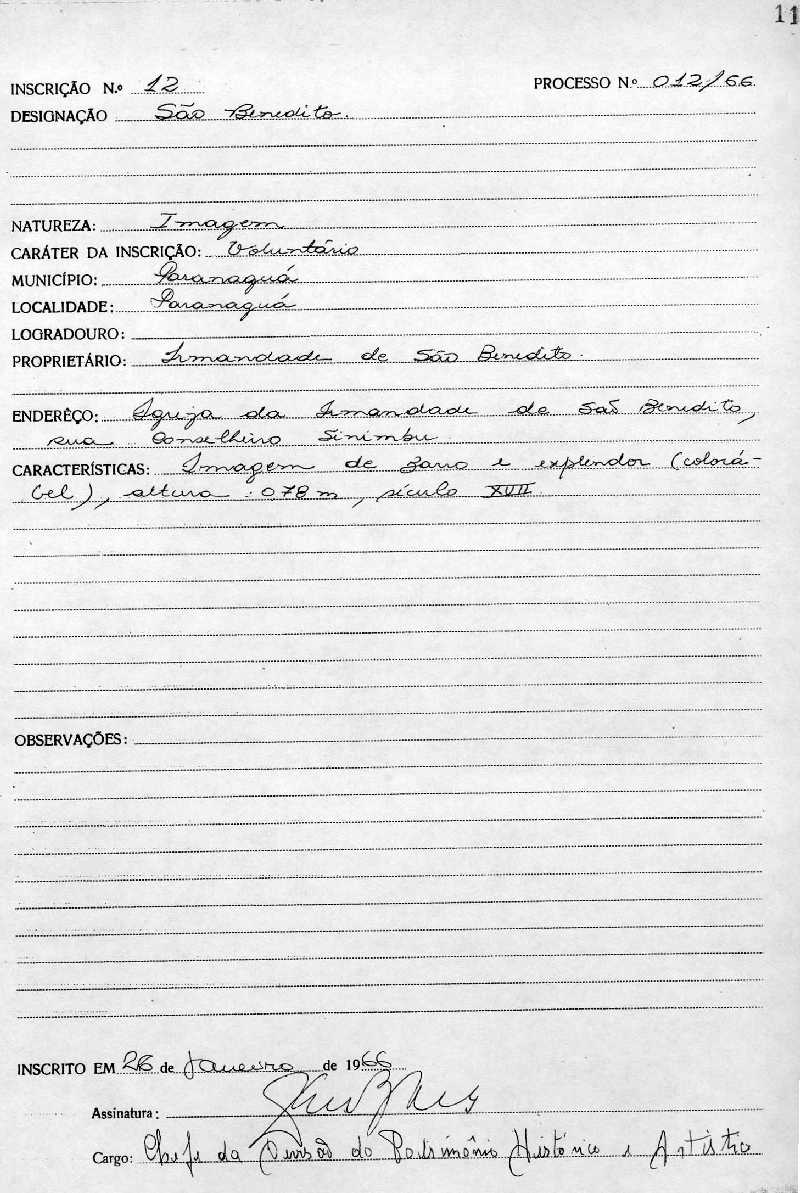 11
INSCRIÇÃO N.º 12 PROCESSO N.º 012/66
DESIGNAÇÃO São Benedito.
NATUREZA: Imagem
CARÁTER DA INSCRIÇÃO: Voluntário
MUNICÍPIO: Paranaguá
LOCALIDADE: Paranaguá
LOGRADOURO:
PROPRIETÁRIO: Irmandade de São Benedito.
ENDERÊÇO: Igreja da Irmandade de São Benedito,
rua Conselheiro Sinimbu
CARACTERÍSTICAS: Imagem de barro e explendor (colorá-
vel), altura 078 m, século XVII.
OBSERVAÇÕES:
INSCRITO EM 26 de Janeiro de 1966
Assinatura:
Cargo: Chefe da Divisão do Patrimônio Histórico e Artístico